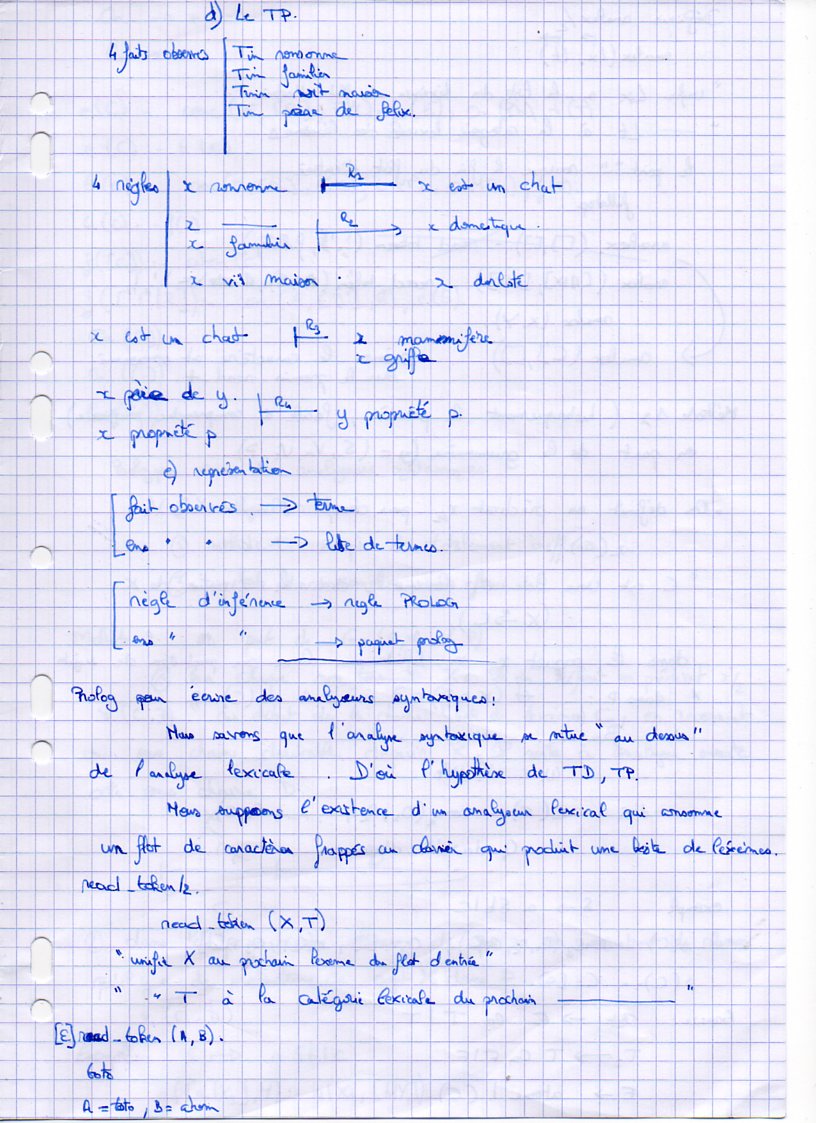 d) Le TP.
4 faits observés
Tin ronronne
Tin familier
Tinin vit maison
Tin père de felix.
4 règles
x ronronne R1 x est un chat
x
x familier R2 x domestique.
x vit maison. x dorloté
x est un chat R3 x mammifère
x griffe
x père de y. R4 y propriété p.
x propriété p
e) représentation
fait observés. → terme
ens " " → liste de termes.
règle d'inférence → regle PROLOG
ens " " → paquet prolog
Prolog pour écrire des analyseurs syntaxiques!
Nous savons que l'analyse syntaxique se situe "au dessus"
de l'analyse lexicale. D'où l'hypothèse de TD, TP.
Nous supposons l'existence d'un analyseur lexical qui consomme
un flot de caractères frappés au clavier qui produit une liste de lexèmes.
read_token/2.
read_token (X,T)
"unifie X au prochain lexeme du flot d'entrée"
" " T à la catégorie lexicale du prochain ——— "
[E] read_token (A, B).
toto
A = toto, B = atom